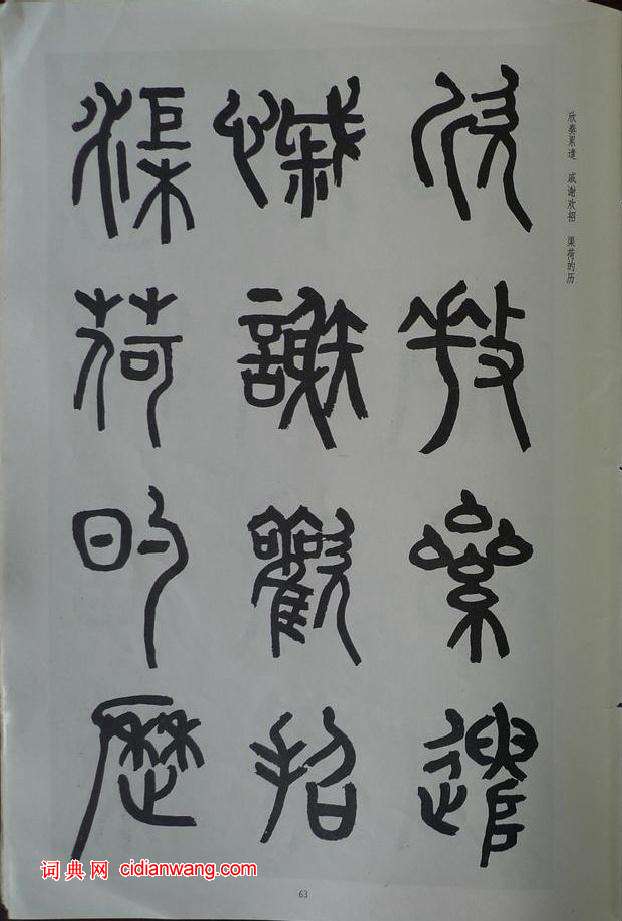 欣奏累遣 戚谢欢招 渠荷的历
欣奏纍遣
慼謝歡招
渠荷的歷
词典网 cidianwang.com
63